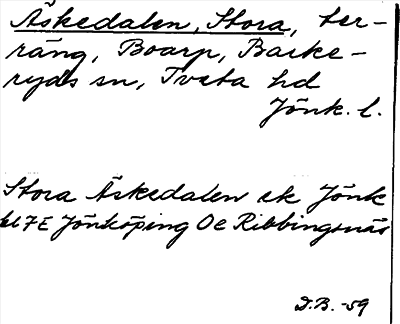 Äskedalen, Stora, ter-
räng, Boarp, Barke-
ryds sn, Tveta hd
Jönk. l.
Stora Äskedalen ek Jönk
bl 7E Jönköping Oc Ribbingsnäs
D.B. -59